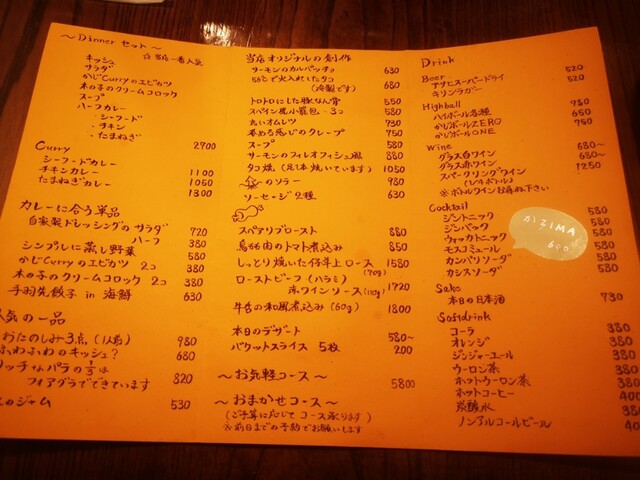 ~ Dinner セット ~
☆ 当店一番人気
キッシュ
サラダ
かじCurryのエビカツ
木の子のクリームコロッケ
スープ
ハーフカレー
・シーフード
・チキン
・たまねぎ
2700
Curry
シーフードカレー 1100
チキンカレー 1050
たまねぎカレー 1300
カレーに合う単品
自家製ドレッシングのサラダ 720
ハーフ 380
シンプルに蒸し野菜 580
かじCurryのエビカツ 2コ 380
木の子のクリームコロッケ 2コ 380
手羽先餃子 in 海鮮 630
人気の一品
おたのしみ3点(1人前) 980
ふわふわのキッシュ? 680
リッチなパテの1/3は
フォアグラでできています 820
ジャム 530
当店オリジナルの創作
サーモンのカルパッチョ 630
58℃で火入れしたタコ
(冷製です) 680
トロトロにした豚なん骨 550
スペイン風小籠包・3コ 580
丸いオムレツ 730
春める感じのクレープ 750
スープ 580
サーモンのフィレオフィッシュ風 880
タコ焼(足1本焼いています) 1050
のソテー 580
ソーセージ2種 630
スペアリブロースト 880
鳥もも肉のトマト煮込み 850
しっとり焼いた仔羊上ロース 1580
(70g)
ローストビーフ(ハラミ)
赤ワインソース(110g) 1720
牛舌の和風煮込み(60g) 1800
本日のデザート 580~
バケットスライス 5枚 200
~ お気軽コース ~ 5800
~ おまかせコース ~
(ご予算に応じてコース承ります)
※前日までの予約でお願いします
Drink
Beer 520
アサヒスーパードライ 520
キリンラガー
Highball
ハイボール各種 780
かじボールZERO 650
かじボールONE 750
Wine
グラス白ワイン 680~
グラス赤ワイン 680~
スパークリングワイン 1250
(1/4ボトル)
※ボトルワインお尋ね下さい
Cocktail
ジントニック 580
ジンバック 580
ウォッカトニック 580
モスコミュール 580
カンパリソーダ 580
カシスソーダ 580
カジMA
600
Sake
本日の日本酒 730
Softdrink
コーラ 380
オレンジ 380
ジンジャーエール 380
ウーロン茶 380
ホットウーロン茶 380
ホットコーヒー 400
炭酸水 380
ノンアルコールビール 400